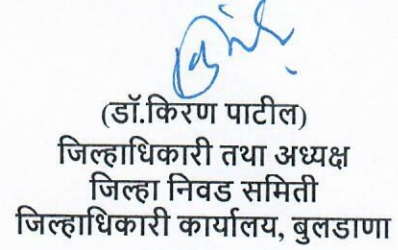 (डॉ.किरण पाटील)
जिल्हाधिकारी तथा अध्यक्ष
जिल्हा निवड समिती
जिल्हाधिकारी कार्यालय, बुलडाणा